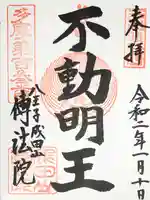 奉拝
令和二年一月十日
不動明王
八王子成田山
傳法院